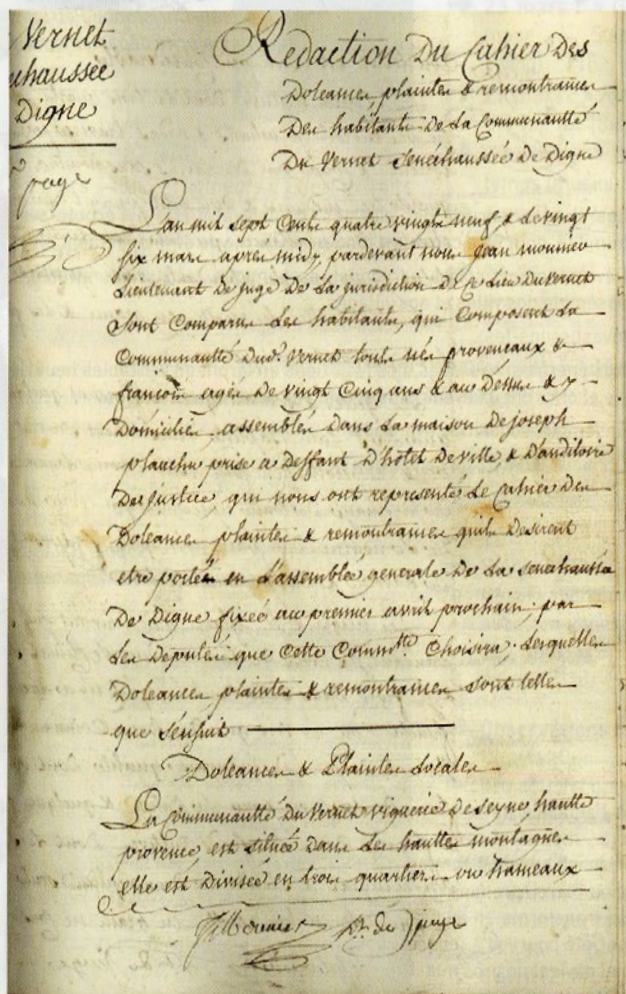 Vernet
uhaussée
Digne
page
Redaction Du Cahier Des
Doleances, plaintes & remontrances
Des habitants De La Communautté
Du Vernet Senéchaussée De Digne
L'an mil sept Cents quatre vingts neuf & Le vingt
six mars après midy pardevant nous Jean
Lieutenant De juge De La jurisdiction De Ce Lieu Du Vernet
sont Comparus Les habitants, qui Composent La
Communautté Dud.t Vernet touts nés provencaux &
françois agés De vingt Cinq ans & au Dessus & y
Domiciliés assemblés Dans La maison De joseph
plauchu prise a Deffaut D'hôtel De ville, & D'auditoire
De justice, qui nous ont representé Le Cahier Des
Doleances plaintes & remontrances quils Desirent
etre portées en L'assemblée generale De La Senechaussée
De Digne fixée au premier avril prochain, par
Les Deputés que Cette Comm.tté Choisira, Lesquelles
Doleances plaintes & remontrances sont telles
que s'ensuit
Doleances & Plaintes Locales
La Communautté Du Vernet viguerie De Seyne hautte
provence, est située Dans Les hauttes montagnes
elle est Divisée en trois quartiers ou hameaux
page